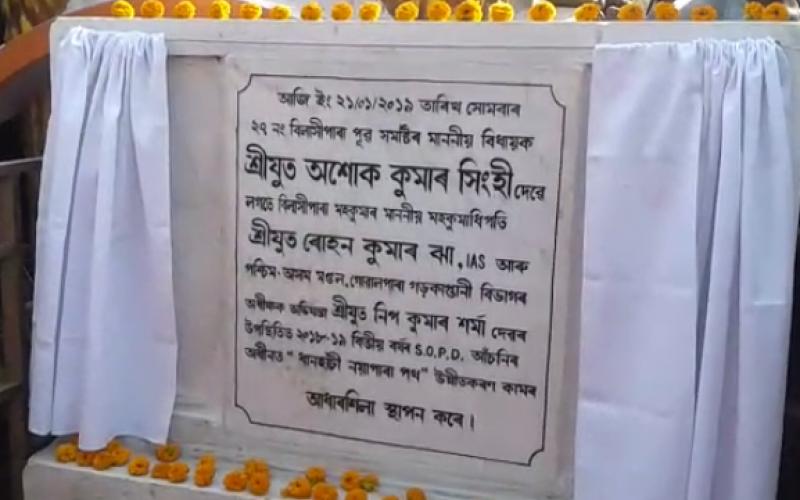 আজি ইং ২১/০১/২০১৯ তাৰিখ সোমবাৰ
২৭ নং বিলাসীপাৰা পূৱ সমষ্টিৰ মাননীয় বিধায়ক
শ্ৰীযুত অশোক কুমাৰ সিংহী দেৱে
লগতে বিলাসীপাৰা মহকুমাৰ মাননীয় মহকুমাধিপতি
শ্ৰীযুত ৰোহন কুমাৰ ঝা, IAS আৰু
পশ্চিম অসম মণ্ডল, গোৱালপাৰা গড়কাপ্তানী বিভাগৰ
অধীক্ষক অভিযন্তা শ্ৰীযুত নিপ কুমাৰ শৰ্মা দেৱৰ
উপস্থিতিত ২০১৮-১৯ বিত্তীয় বৰ্ষৰ S.O.P.D. আঁচনিৰ
অধীনত " ধানহাটী নয়াপাৰা পথ" উন্নীতকৰণ কামৰ
আধাৰশিলা স্থাপন কৰে।